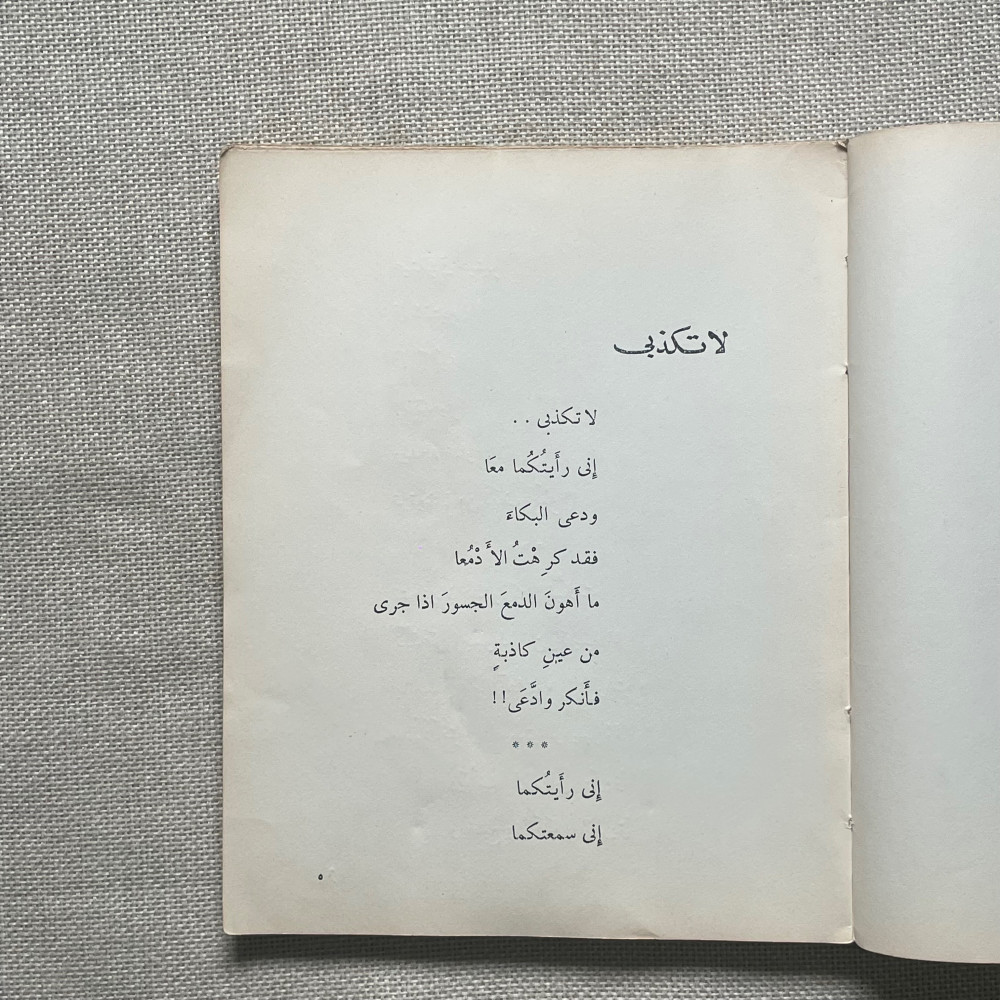 لا تكذبى
لا تكذبى . .
إنى رأَيتُكُما معَا
ودعى البكاءَ
فقد كرِهْتُ الأَدْمُعا
ما أَهونَ الدمعَ الجسورَ اذا جرى
من عينِ كاذبةٍ
فأَنكر وادَّعَى!!
* * *
إنى رأَيتُكما
إنى سمعتكما
٥